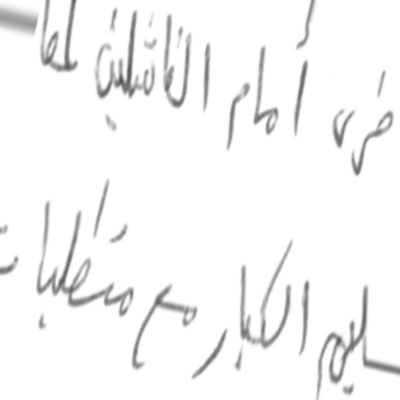 خرى أمام الفاشلين
ليم الكبار مع متطلبات